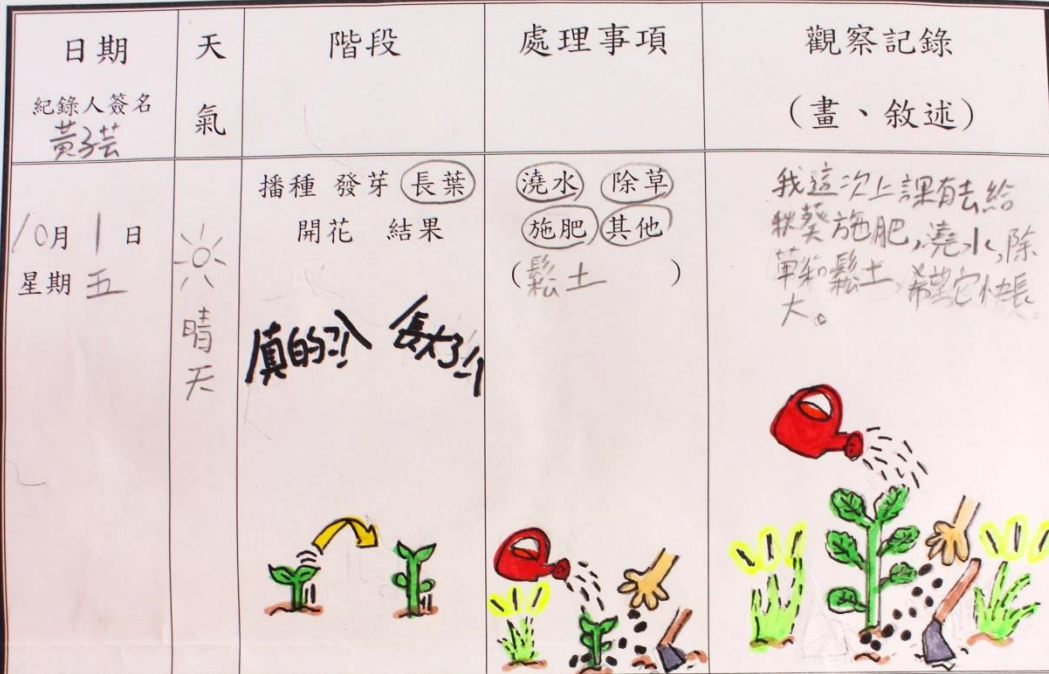 日期
紀錄人簽名
黃子芸
天
氣
階段
處理事項
觀察記錄
(畫、敘述)
10月1日
星期五
晴
天
播種 發芽 長葉
開花 結果
真的?! 長大了!!
澆水 除草
施肥 其他
(鬆土 )
我這次上課有去給
秋葵施肥,澆水,除
草和鬆土,希望它快長
大。